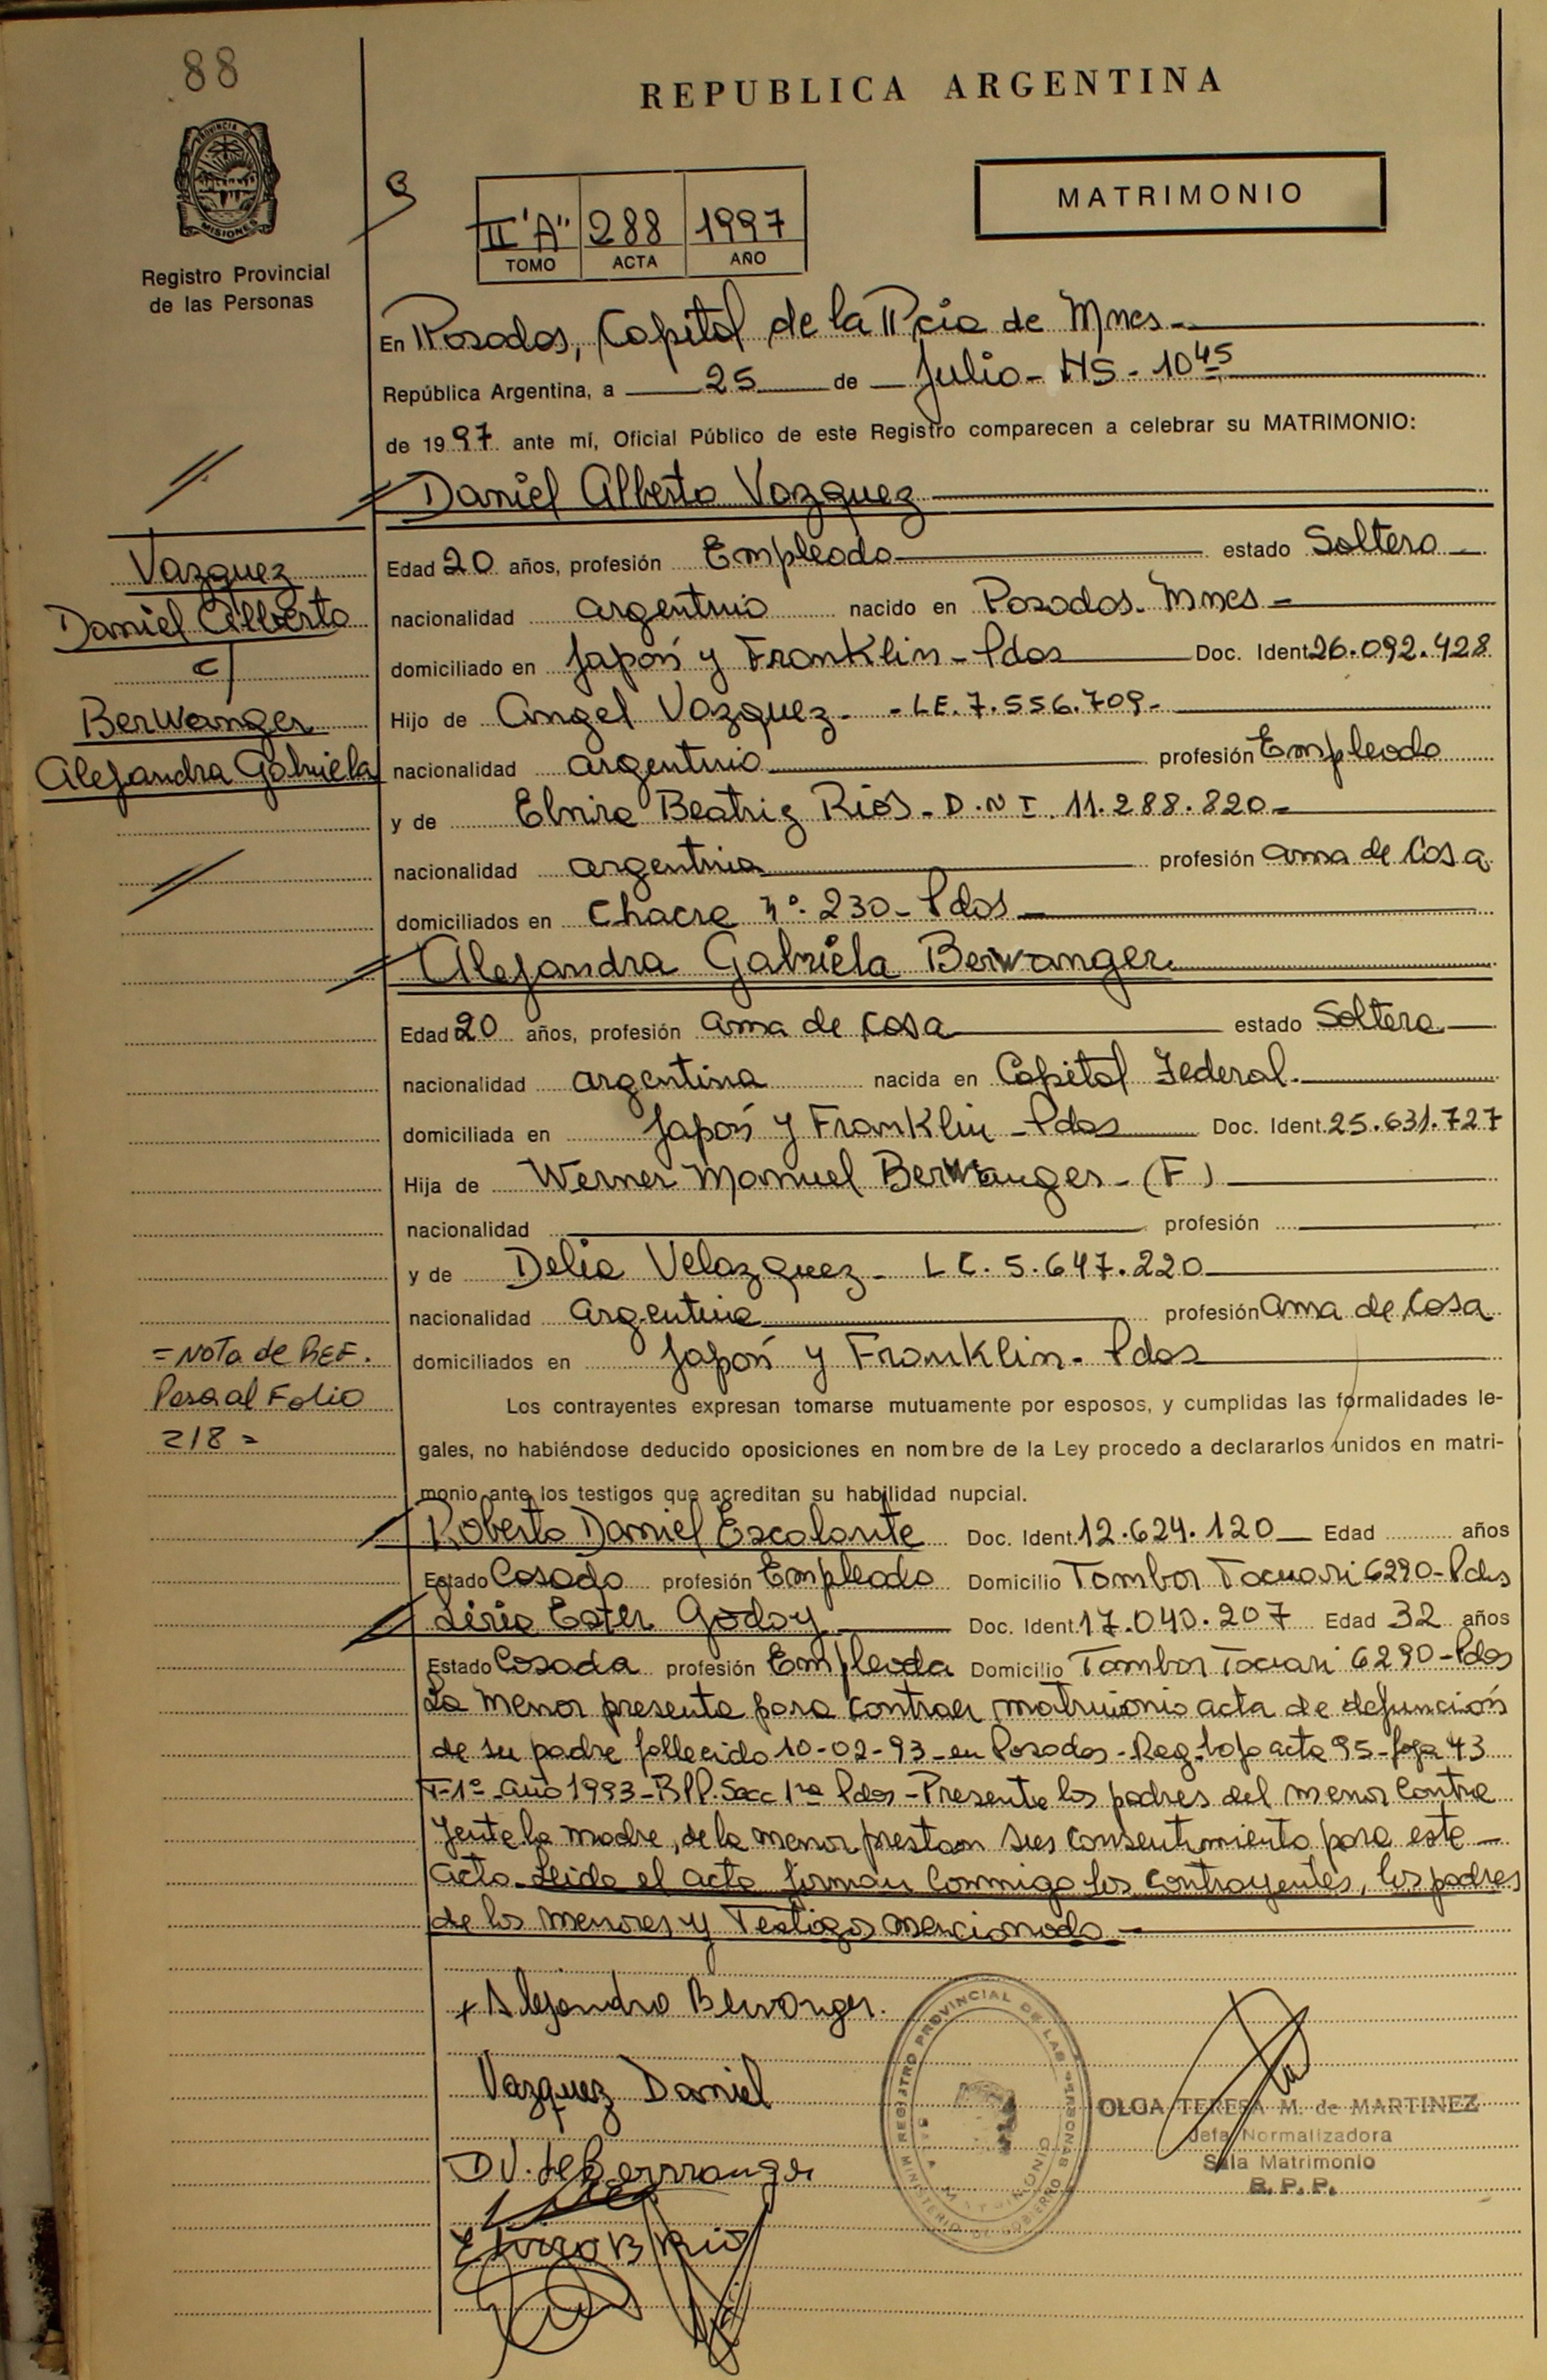 88
REPUBLICA ARGENTINA
PROVINCIA DE
MISIONES
Registro Provincial
de las Personas
II "A" 288 1997
TOMO ACTA AÑO
MATRIMONIO
En Posadas, Capital de la Pcia de Mnes.
República Argentina, a 25 de Julio - HS - 10 45
de 1997 ante mí, Oficial Público de este Registro comparecen a celebrar su MATRIMONIO:
Daniel Alberto Vazquez
Edad 20 años, profesión Empleado estado Soltero
nacionalidad argentino nacido en Posadas. Mnes
domiciliado en Japón y Franklin - Pdas Doc. Ident. 26.092.428
Hijo de Angel Vazquez - LE. 7.556.709
nacionalidad argentino profesión Empleado
y de Elvira Beatriz Rios - D.N I. 11.288.820
nacionalidad argentina profesión ama de Casa
domiciliados en Chacra nº. 230 - Pdas
Vazquez
Daniel Alberto
c/
Berwanger
Alejandra Gabriela
Alejandra Gabriela Berwanger
Edad 20 años, profesión ama de casa estado Soltera
nacionalidad argentina nacida en Capital Federal.
domiciliada en Japón y Franklin - Pdas Doc. Ident. 25.631.727
Hija de Werner Manuel Berwanger - (F)
nacionalidad profesión
y de Delia Velazquez - L C. 5.647.220
nacionalidad Argentina profesión ama de Casa
domiciliados en Japón y Franklin - Pdas
= Nota de REF.
Pasa al Folio
218 =
Los contrayentes expresan tomarse mutuamente por esposos, y cumplidas las formalidades le-
gales, no habiéndose deducido oposiciones en nombre de la Ley procedo a declararlos unidos en matri-
monio ante los testigos que acreditan su habilidad nupcial.
Roberto Daniel Escalante Doc. Ident. 12.624.120 Edad años
Estado Casado profesión Empleado Domicilio Tambor Tacuari 6290 - Pdas
Liria Ester Godoy Doc. Ident. 17.040.207 Edad 32 años
Estado Casada profesión Empleada Domicilio Tambor Tacuari 6290 - Pdas
La menor presenta para contraer matrimonio acta de defunción
de su padre fallecido 10-02-93 - en Posadas - Reg. bajo acta 95 - foja 43
T-1º - año 1993 - RPP. Secc 1ra Pdas - Presente los padres del menor contra
yente la madre, de la menor prestan sus consentimiento para este
acto. Leida el acta firman conmigo los contrayentes, los padres
de los menores y Testigos mencionado
Alejandra Berwanger.
Vazquez Daniel
D V. de Berwanger
Elvira B Rios
REGISTRO PROVINCIAL DE LAS PERSONAS
MINISTERIO DE GOBIERNO
MATRIMONIO
OLGA TERESA M. de MARTINEZ
Jefa Normalizadora
Sala Matrimonio
R. P. P.